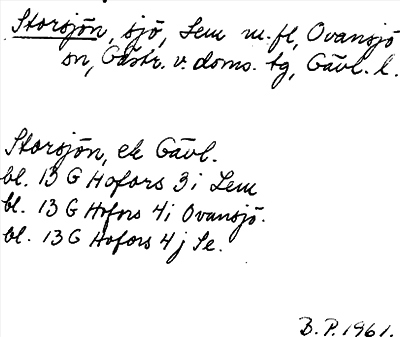 Storsjön, sjö, Lem m.fl, Ovansjö
sn, Gästr. v. doms. tg, Gävl. l.
Storsjön, ek Gävl.
bl. 13 G Hofors 3 i Lem
bl. 13 G Hofors 4 i Ovansjö.
bl. 13 G Hofors 4 j Se.
B.P. 1961.